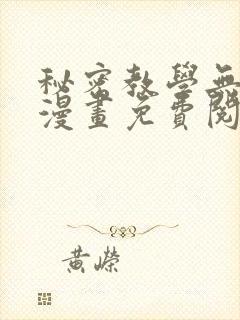 秘密教學無
漫畫免費閱
黃嶸